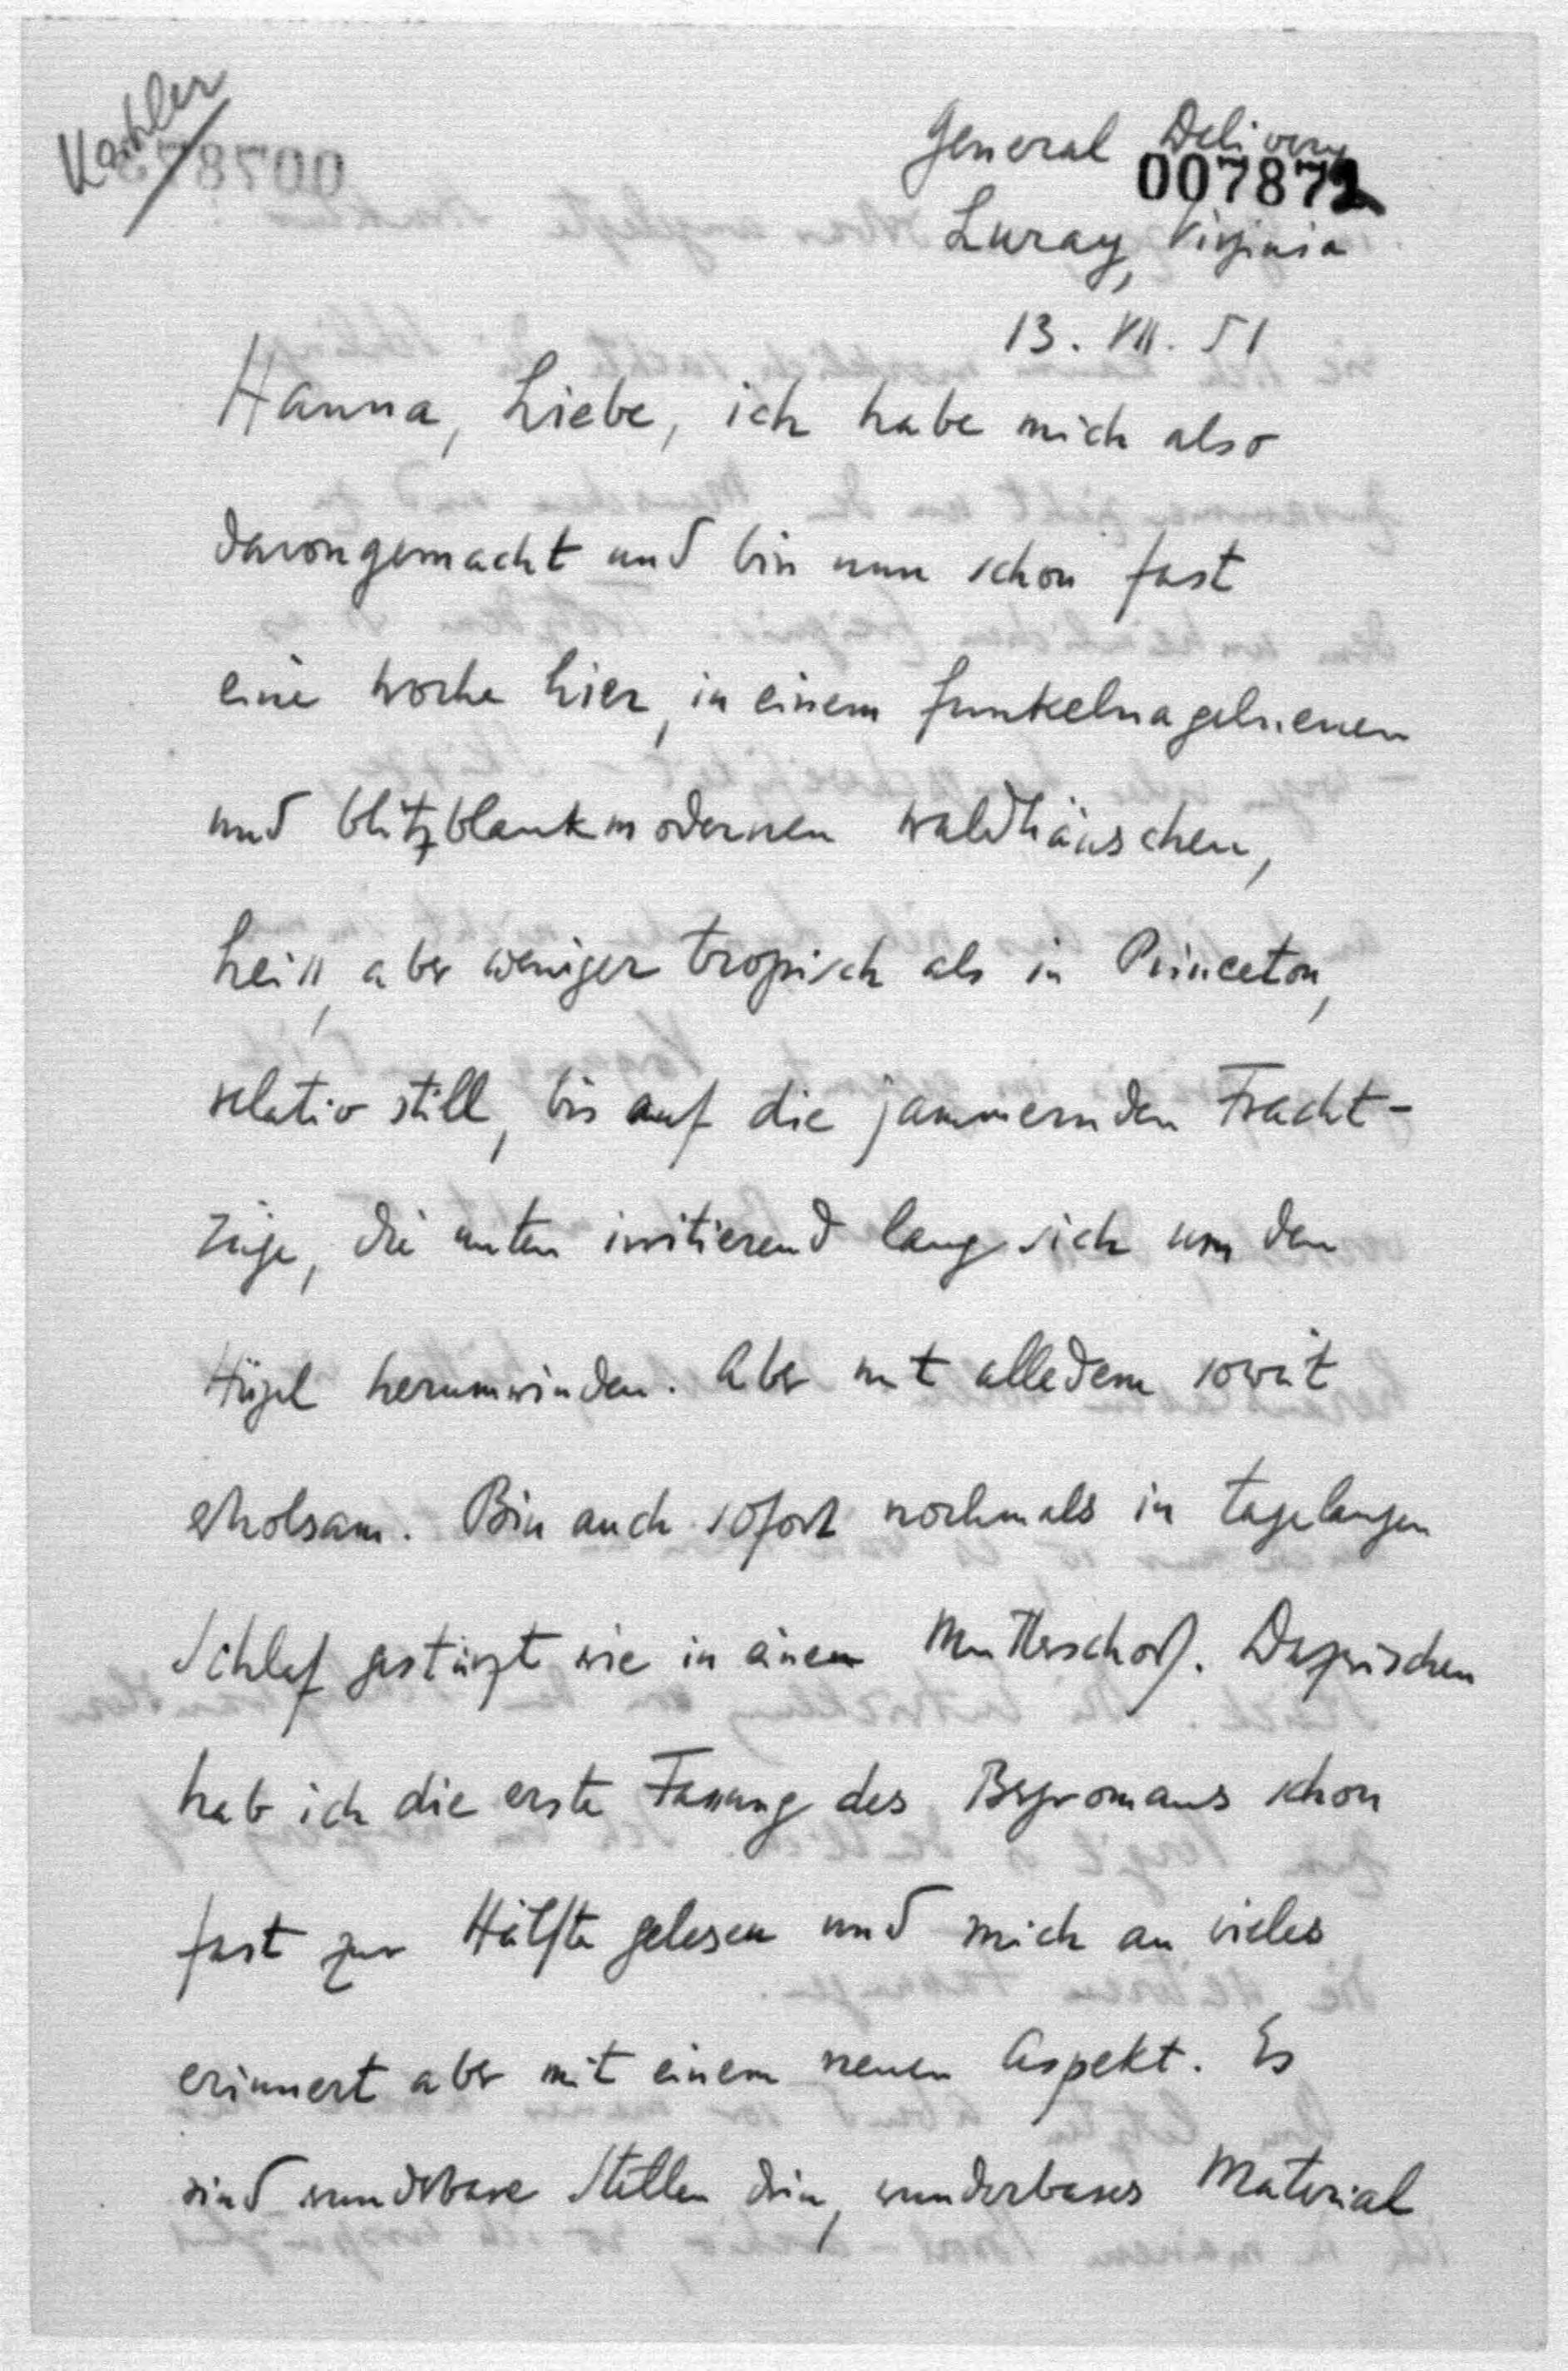 Kahler
General Delivery
007872
Luray, Virginia
13. VII. 51
Hanna, Liebe, ich habe mich also
davongemacht und bin nun schon fast
eine Woche hier, in einem funkelnagelneuen
und blitzblankmodernen Waldhäuschen,
heiss, aber weniger tropisch als in Princeton,
relativ still, bis auf die jammernden Fracht-
züge, die unten irritierend lang sich um den
Hügel herumwinden. Aber mit alledem soweit
erholsam. Bin auch sofort nochmals in tagelangen
Schlaf gestürzt wie in einen Mutterschoß. Dazwischen
hab ich die erste Fassung des Bergromans schon
fast zur Hälfte gelesen und mich an vieles
erinnert aber mit einem neuen Aspekt. Es
sind wunderbare Stellen drin, wunderbares Material